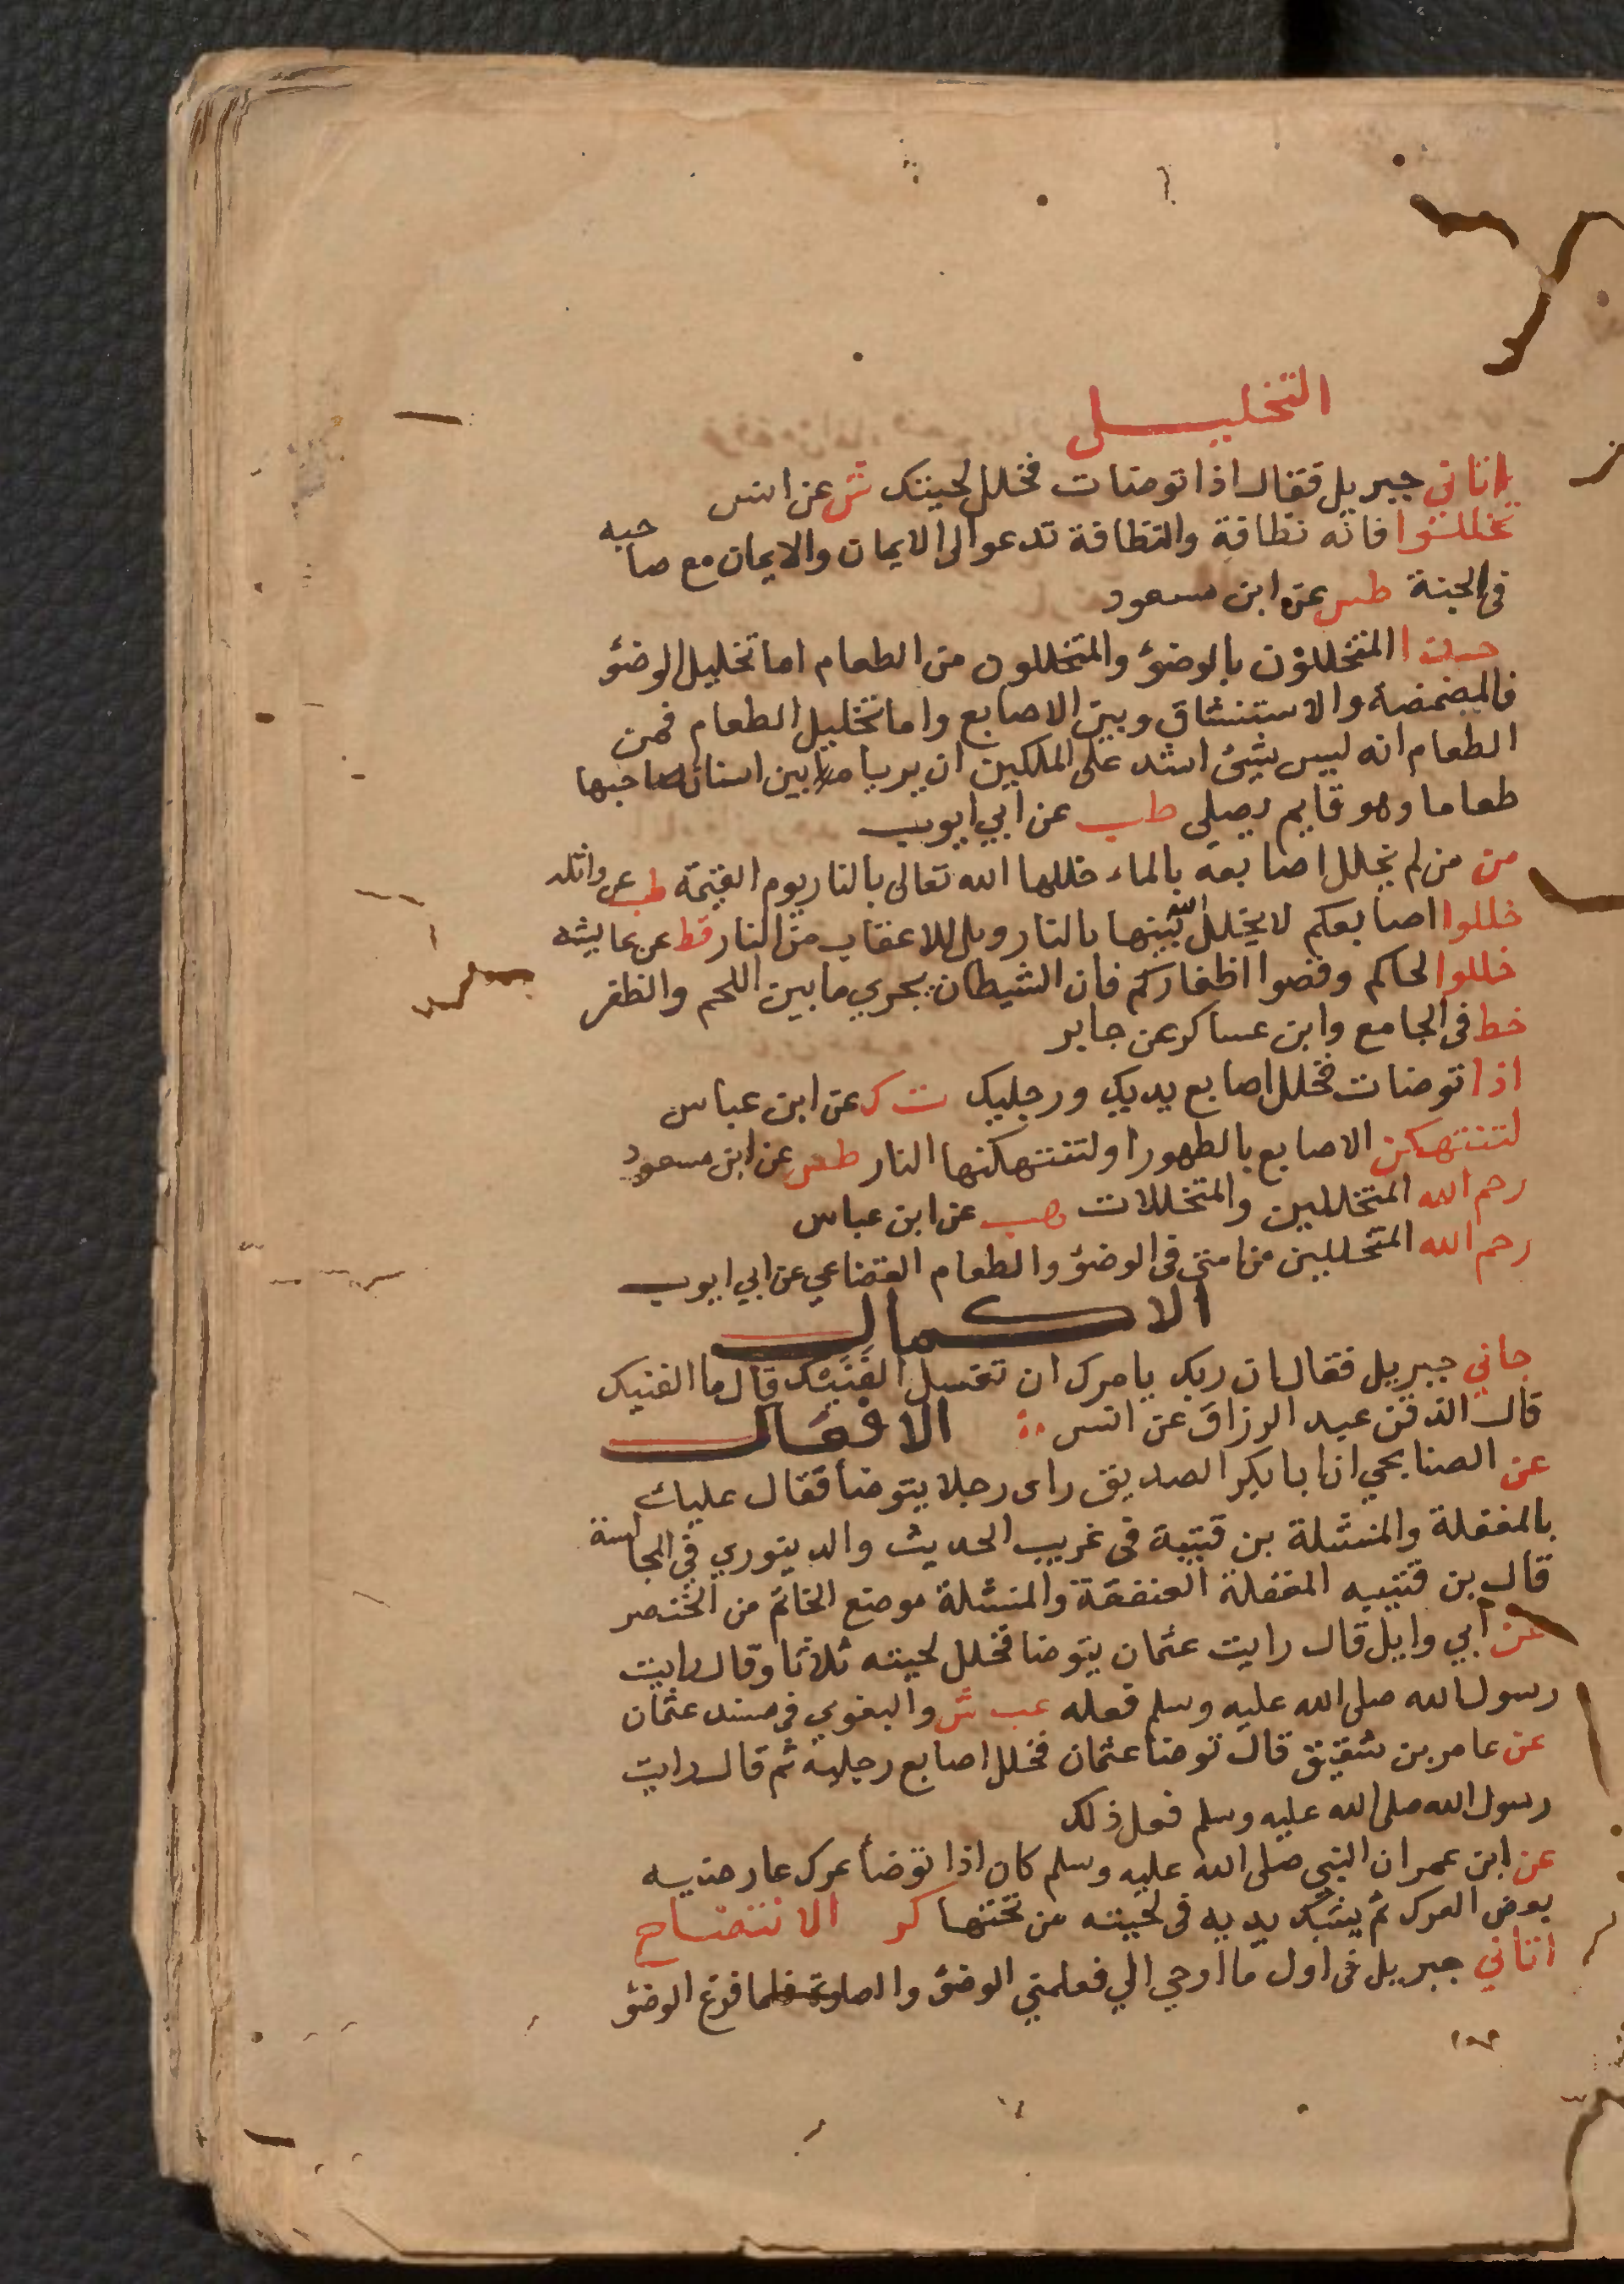 التخليل
اتاني جبريل فقال اذا توضات فخلل لحيتك ش عن انس
تخللوا فانه نظافة والنظافة تدعوا الى الايمان والايمان مع صاحبه
فى الجنة طس عن ابن مسعود
حبذا المتخللون بالوضؤ والمتخللون من الطعام اما تخليل الوضؤ
فالمضمضة والاستنشاق وبين الاصابع واما تخليل الطعام فمن
الطعام انه ليس شيئ اشد على الملكين ان يريا ما بين اسنان صاحبها
طعاما وهو قايم يصلى طب عن ابي ايوب
من من لم يخلل اصابعه بالماء خللها الله تعالى بالنار يوم القيمة طب عن واثله
خللوا اصابعكم لا يخلل الله بينها بالنار ويل للاعقاب من النار قط عن عايشه
خللوا لحاكم وقصوا اظفاركم فان الشيطان يجري ما بين اللحم والظفر
خط فى الجامع وابن عساكر عن جابر
اذا توضات فخلل اصابع يديك ورجليك ت ك عن ابن عباس
لتنتهكن الاصابع بالطهور او لتنتهكنها النار طس عن ابن مسعود
رحم الله المتخللين والمتخللات هب عن ابن عباس
رحم الله المتخللين من امتي فى الوضؤ والطعام القضاعي عن ابي ايوب
الاكمال
جاني جبريل فقال ان ربك يامرك ان تغسل الفنيك قال ما الفنيك
قال الذقن عبد الرزاق عن انس الافعال
عن الصنابحي ان ابا بكر الصديق راى رجلا يتوضأ فقال عليك
بالمغفلة والمنشلة بن قتيبة فى غريب الحديث والدينوري في المجالسة
قال بن قتيبه المغفلة العنفقة والمنشلة موضع الخاتم من الخنصر
عن أبي وايل قال رايت عثمان يتوضا فخلل لحيته ثلاثا وقال رايت
رسول الله صلى الله عليه وسلم فعله عب ش والبغوي فى مسند عثمان
عن عامر بن شقيق قال توضا عثمان فخلل اصابع رجليه ثم قال رايت
رسول الله صلى الله عليه وسلم فعل ذلك
عن ابن عمر ان النبي صلى الله عليه وسلم كان اذا توضأ عرك عارضيه
بعض العرك ثم يشبك يديه فى لحيته من تحتها كر الانتضاح
اتاني جبريل فى اول ما اوحي الي فعلمني الوضؤ والصلوة فلما فرغ الوضؤ